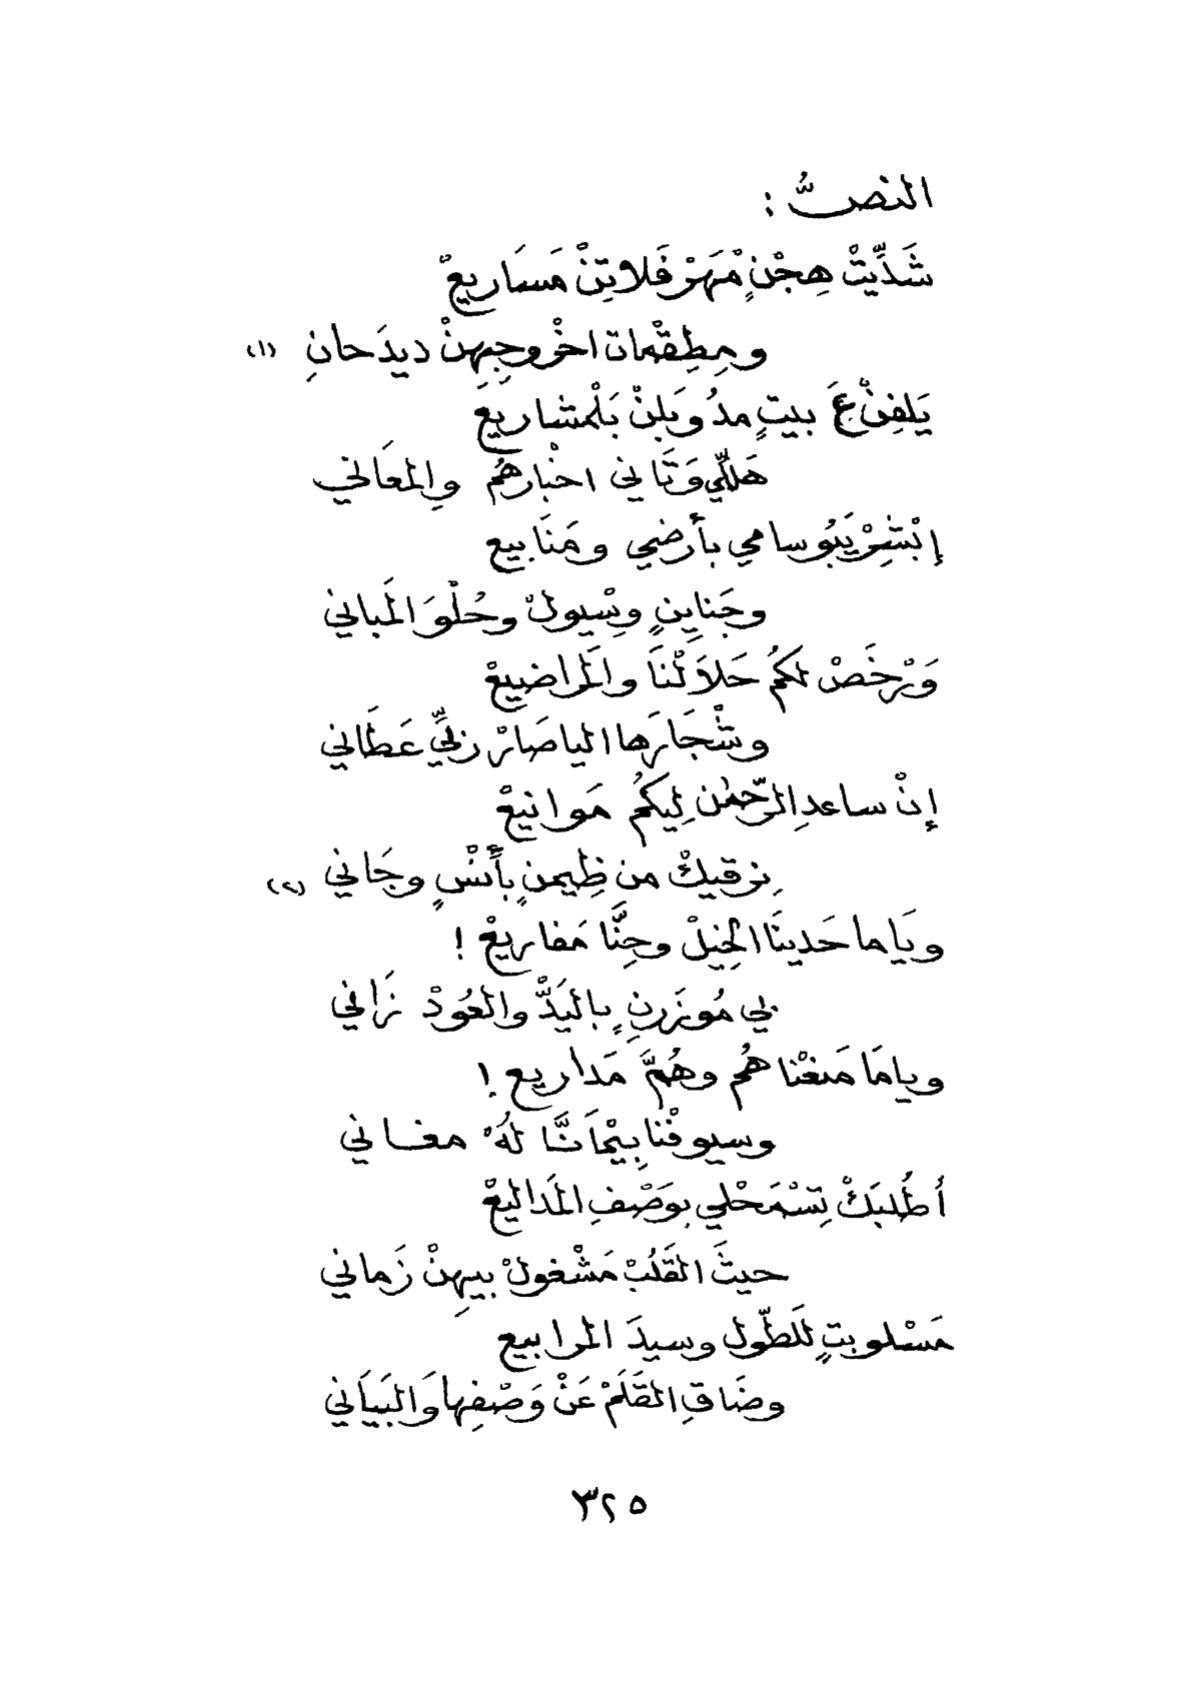 النصُّ :
شَدِّيتْ هِجْنٍ مْهَرْفَلاتِنْ مَسَاريعْ
ومِطِقْمات اخْروجِبِهِنْ ديدَحانِ (١)
يَلفِنْ عَ بيتٍ مدُوبَلِنْ بَلْمشاريعْ
هَللِّي وَتَّاني اخْبارهُم والمعَاني
إبْشِرْ يَبُو سامي بأرضي ومَنَابيع
وجَنايِنٍ وِسْيولْ وحُلْوَ المَباني
وَرْخَصْ لكمُ حَلاَلْنَا والمَراضيعْ
وشْجَارَها الياصَارْ ربِّي عَطَاني
إنْ ساعدِ الرّحمٰن لِيكمُ هَوانيعْ
نِرقيكْ من ظِيمنٍ بأَنْسٍ وجَاني (٢)
ويَاما حَدينَا الخِيلْ وحِنَّا مَفاريعْ !
بي مُوزَرنٍ بِاليَدّْ والعُودْ زَاني
وياما مَنعْناهُم وهُمَّ مَداريع !
وسيوفْنا بِيْمانَّا لَهْ مغاني
أطُلبَكْ تِسْمَحْلي بوَصْفِ المَداليعْ
حيثَ القَلُبْ مَشْغولْ بيهِنْ زَماني
مَسْلوبتٍ للَطّول وسيدَ المرابيع
وضَاقِ القَلَمْ عَنْ وَصْفِها وَالبَيَاني
٣٢٥